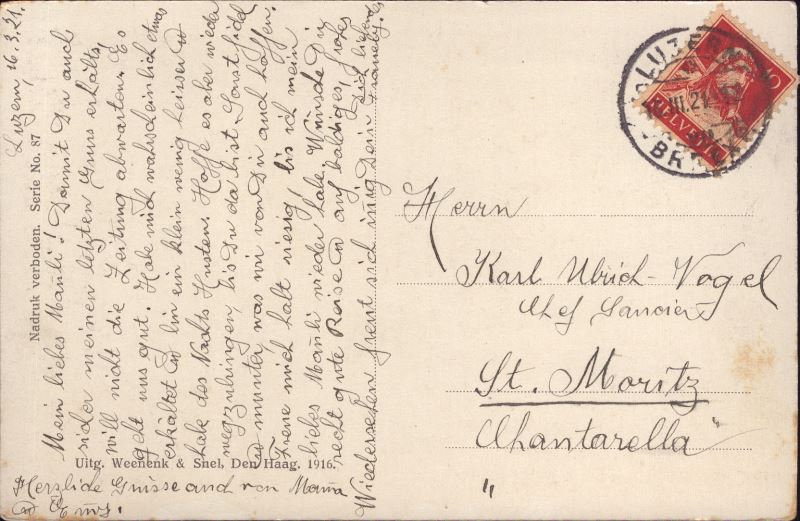 Luzern, 16.3.21.
Mein liebes Mauli! Damit Du auch
sicher meinen letzten Gruss erhälts,
will nicht die Zeitung abwarten. Es
geht uns gut. Habe mich wahrscheinlich etwas
erkältet & bin ein klein wenig heiser &
habe des Nachts Husten. Hoffe es aber wieder
wegzubringen, bis Du da bist. Sonst fidel
& munter, was wir von Du auch hoffen.
Freue mich halt riesig! bis ich mein
liebes Mauli wieder habe. Wünsche Dir
recht gute Reise & auf baldiges, frohes
Wiedersehen freut sich innig Dein Dich liebendes
Herzliche Grüsse auch von Mama
& Emmy.
Nadruk verboden. Serie No. 87
Uitg. Weenenk & Snel, Den Haag. 1916.
LUZERN
III.21
BR
HELVETIA
10
Herrn
Karl Ulrich-Vogel
Chef Saucier
St. Moritz
"Chantarella"
"